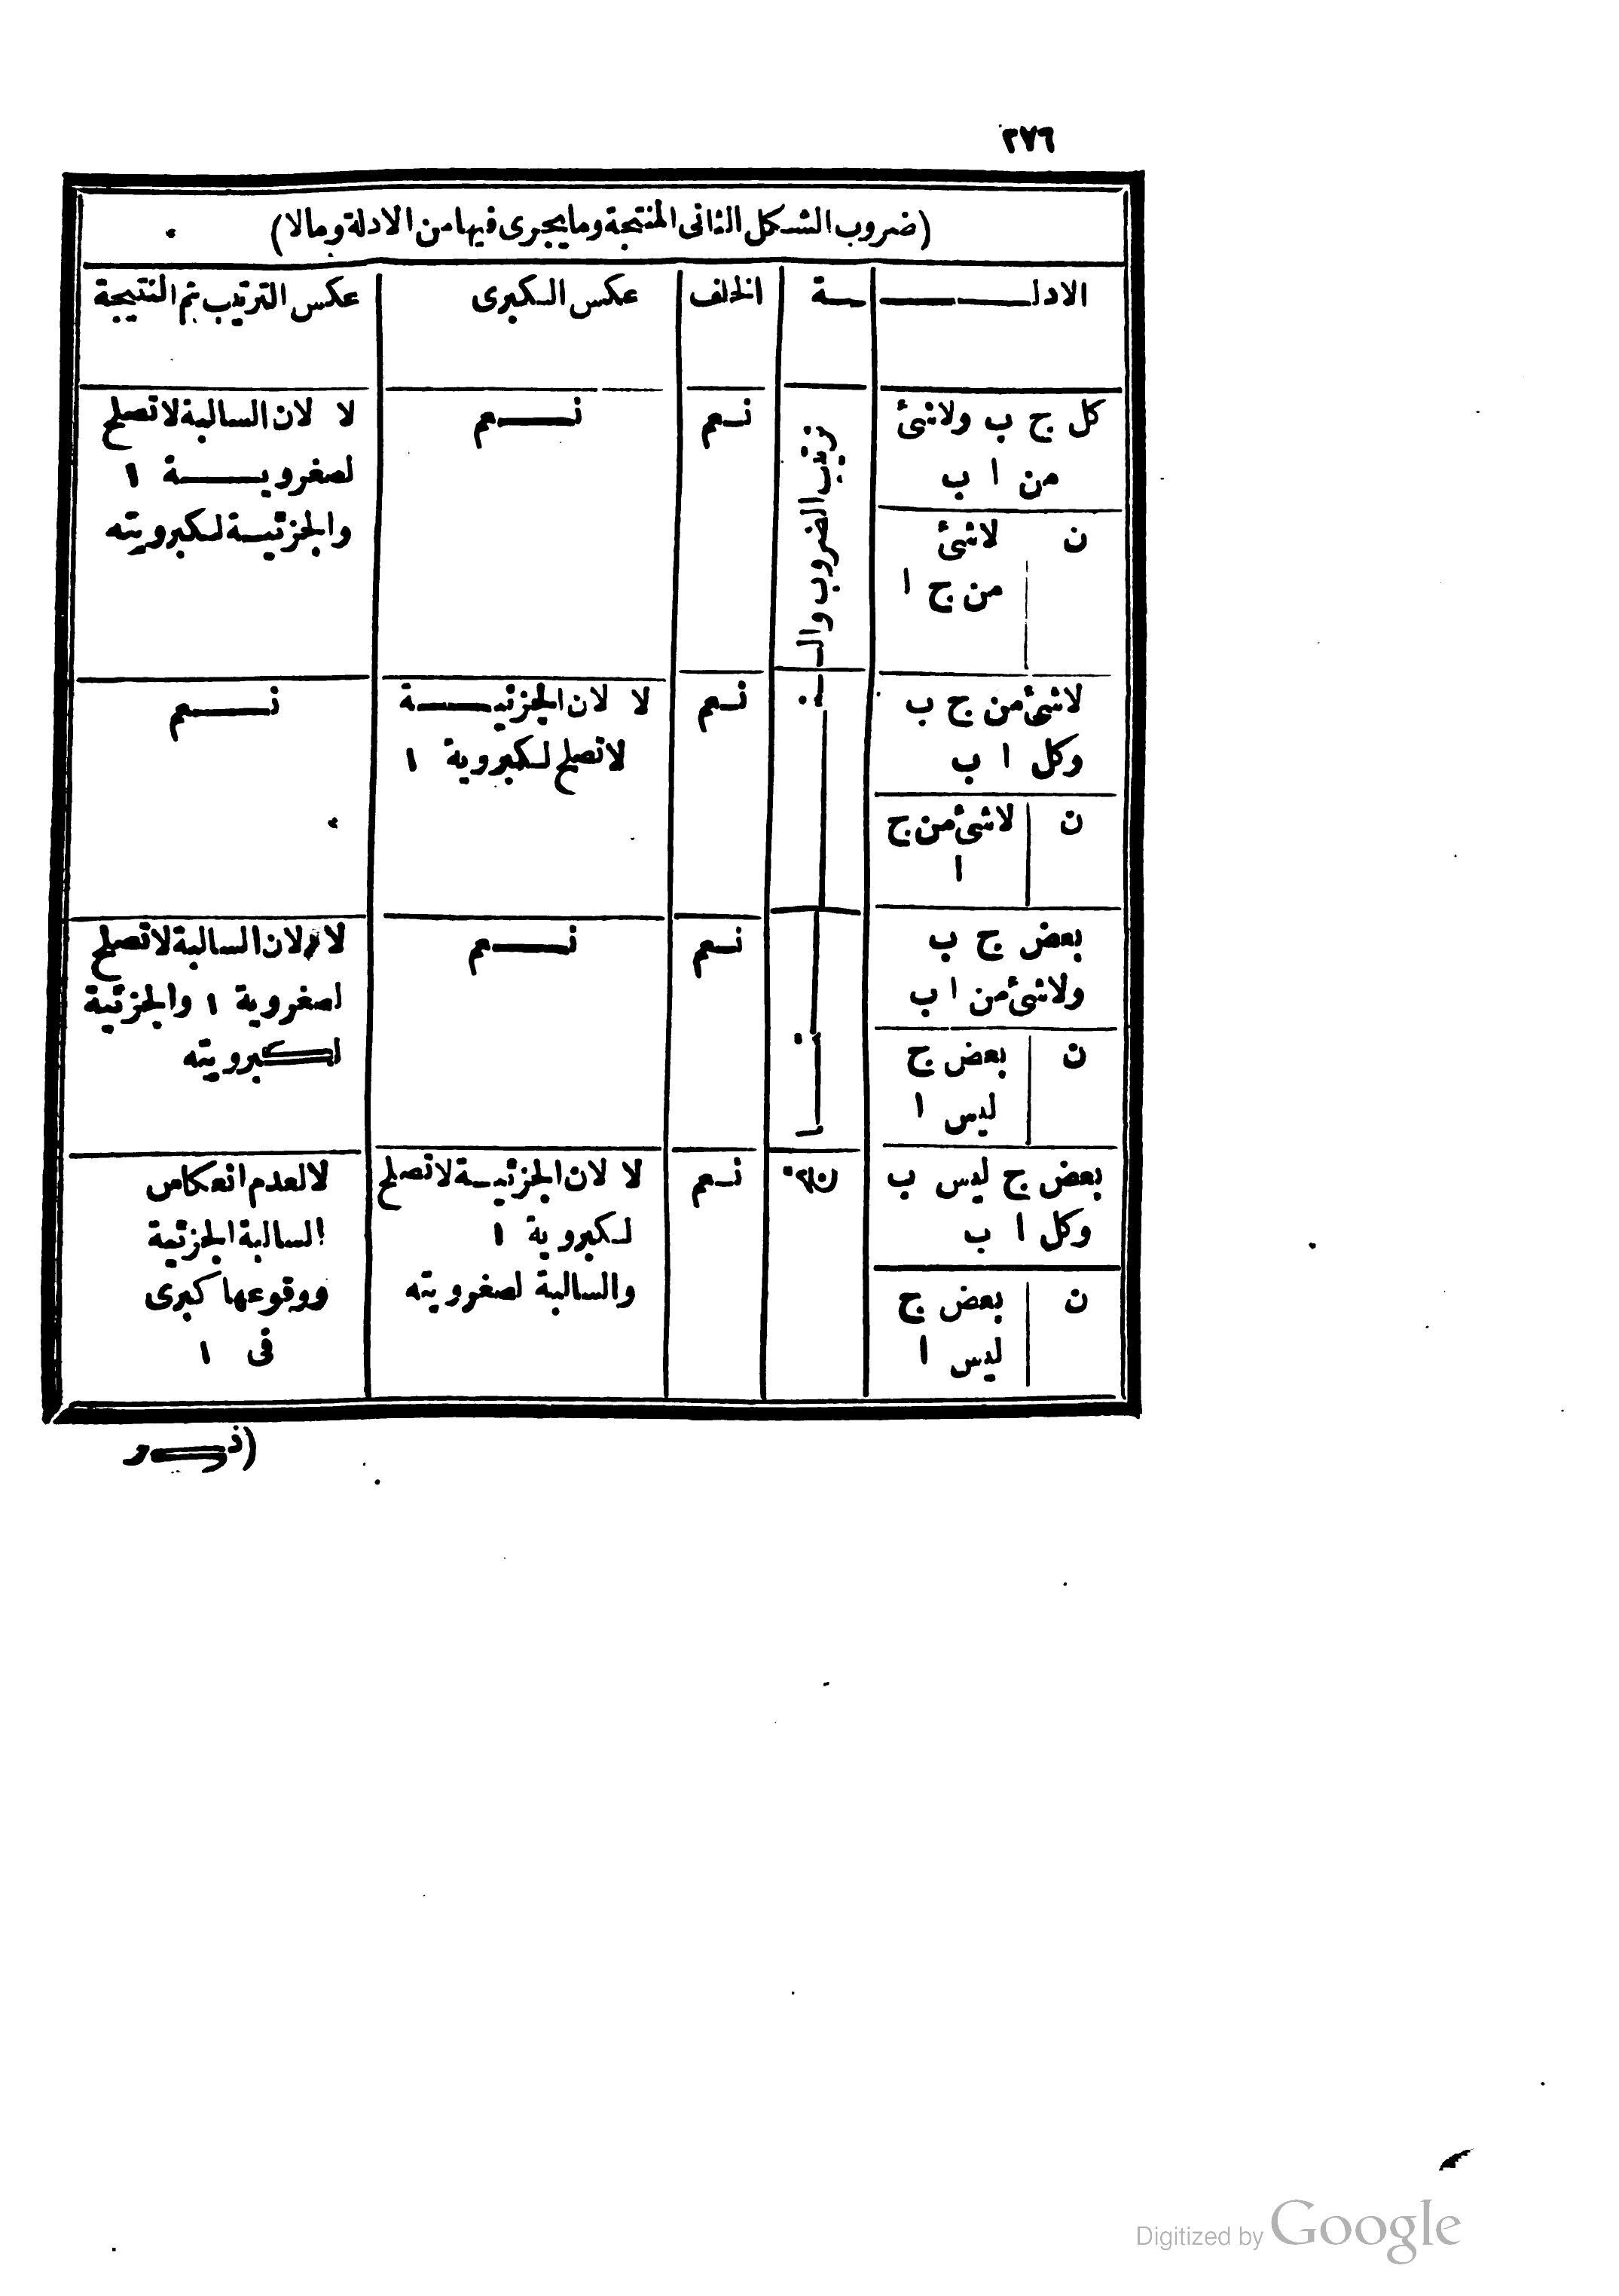 ٢٧٦
(ضروب الشكل الثانى المنتجة وما يجرى فيها من الادلة ومالا)
الادلــــة
الخلف
عكس الكبرى
عكس الترتيب ثم النتيجة
ترتيب الضروب والـ
كل ج ب ولاشئ
من ا ب
ن
لاشئ
من ج ا
نعم
نعم
لا لان السالبة لاتصلح
لصغروية ١
والجزئية لكبرويته
لاشئ من ج ب
وكل ا ب
ن
لاشئ من ج
ا
نعم
لا لان الجزئية
لاتصلح لكبروية ١
نعم
بعض ج ب
ولاشئ من ا ب
ن
بعض ج
ليس ا
نعم
نعم
لا لان السالبة لاتصلح
لصغروية ١ والجزئية
لكبرويته
بعض ج ليس ب
وكل ا ب
ن
بعض ج
ليس ا
نعم
لا لان الجزئية لاتصلح
لكبروية ١
والسالبة لصغرويته
لالعدم انعكاس
السالبة الجزئية
ووقوعها كبرى
فى ١
Digitized by Google